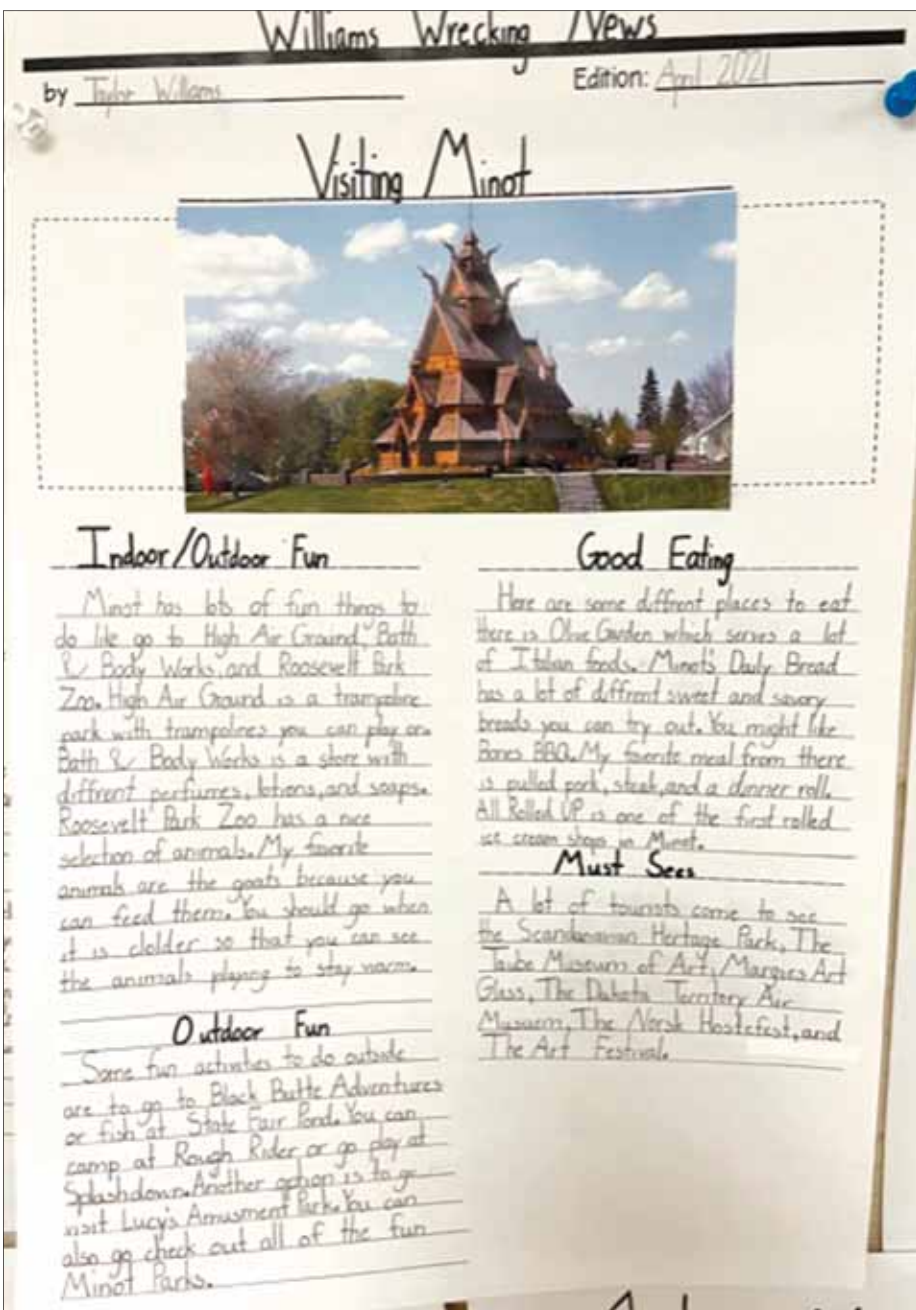 Williams Wrecking News
by Taylor Williams
Edition: April 2021
Visiting Minot
Indoor/Outdoor Fun
Minot has lots of fun things to
do like go to High Air Ground, Bath
& Body Works, and Roosevelt Park
Zoo. High Air Ground is a trampoline
park with trampolines you can play on.
Bath & Body Works is a store with
diffrent perfumes, lotions, and soaps.
Roosevelt Park Zoo has a nice
selection of animals. My favorite
animals are the goats because you
can feed them. You should go when
it is clolder so that you can see
the animals playing to stay warm.
Outdoor Fun
Some fun activities to do outside
are to go to Black Butte Adventures
or fish at State Fair Pond. You can
camp at Rough Rider or go play at
Splashdown. Another option is to go
visit Lucy's Amusment Park. You can
also go check out all of the fun
Minot Parks.
Good Eating
Here are some diffrent places to eat
there is Olive Garden which serves a lot
of Italian foods. Minot's Daily Bread
has a lot of diffrent sweet and savory
breads you can try out. You might like
Bones BBQ. My favorite meal from there
is pulled pork, steak, and a dinner roll.
All Rolled UP is one of the first rolled
ice cream shops in Minot.
Must Sees
A lot of tourists come to see
the Scandanavian Heritage Park, The
Taube Museum of Art, Margies Art
Glass, The Dakota Territory Air
Musuem, The Norsk Hostefest, and
The Art Festival.